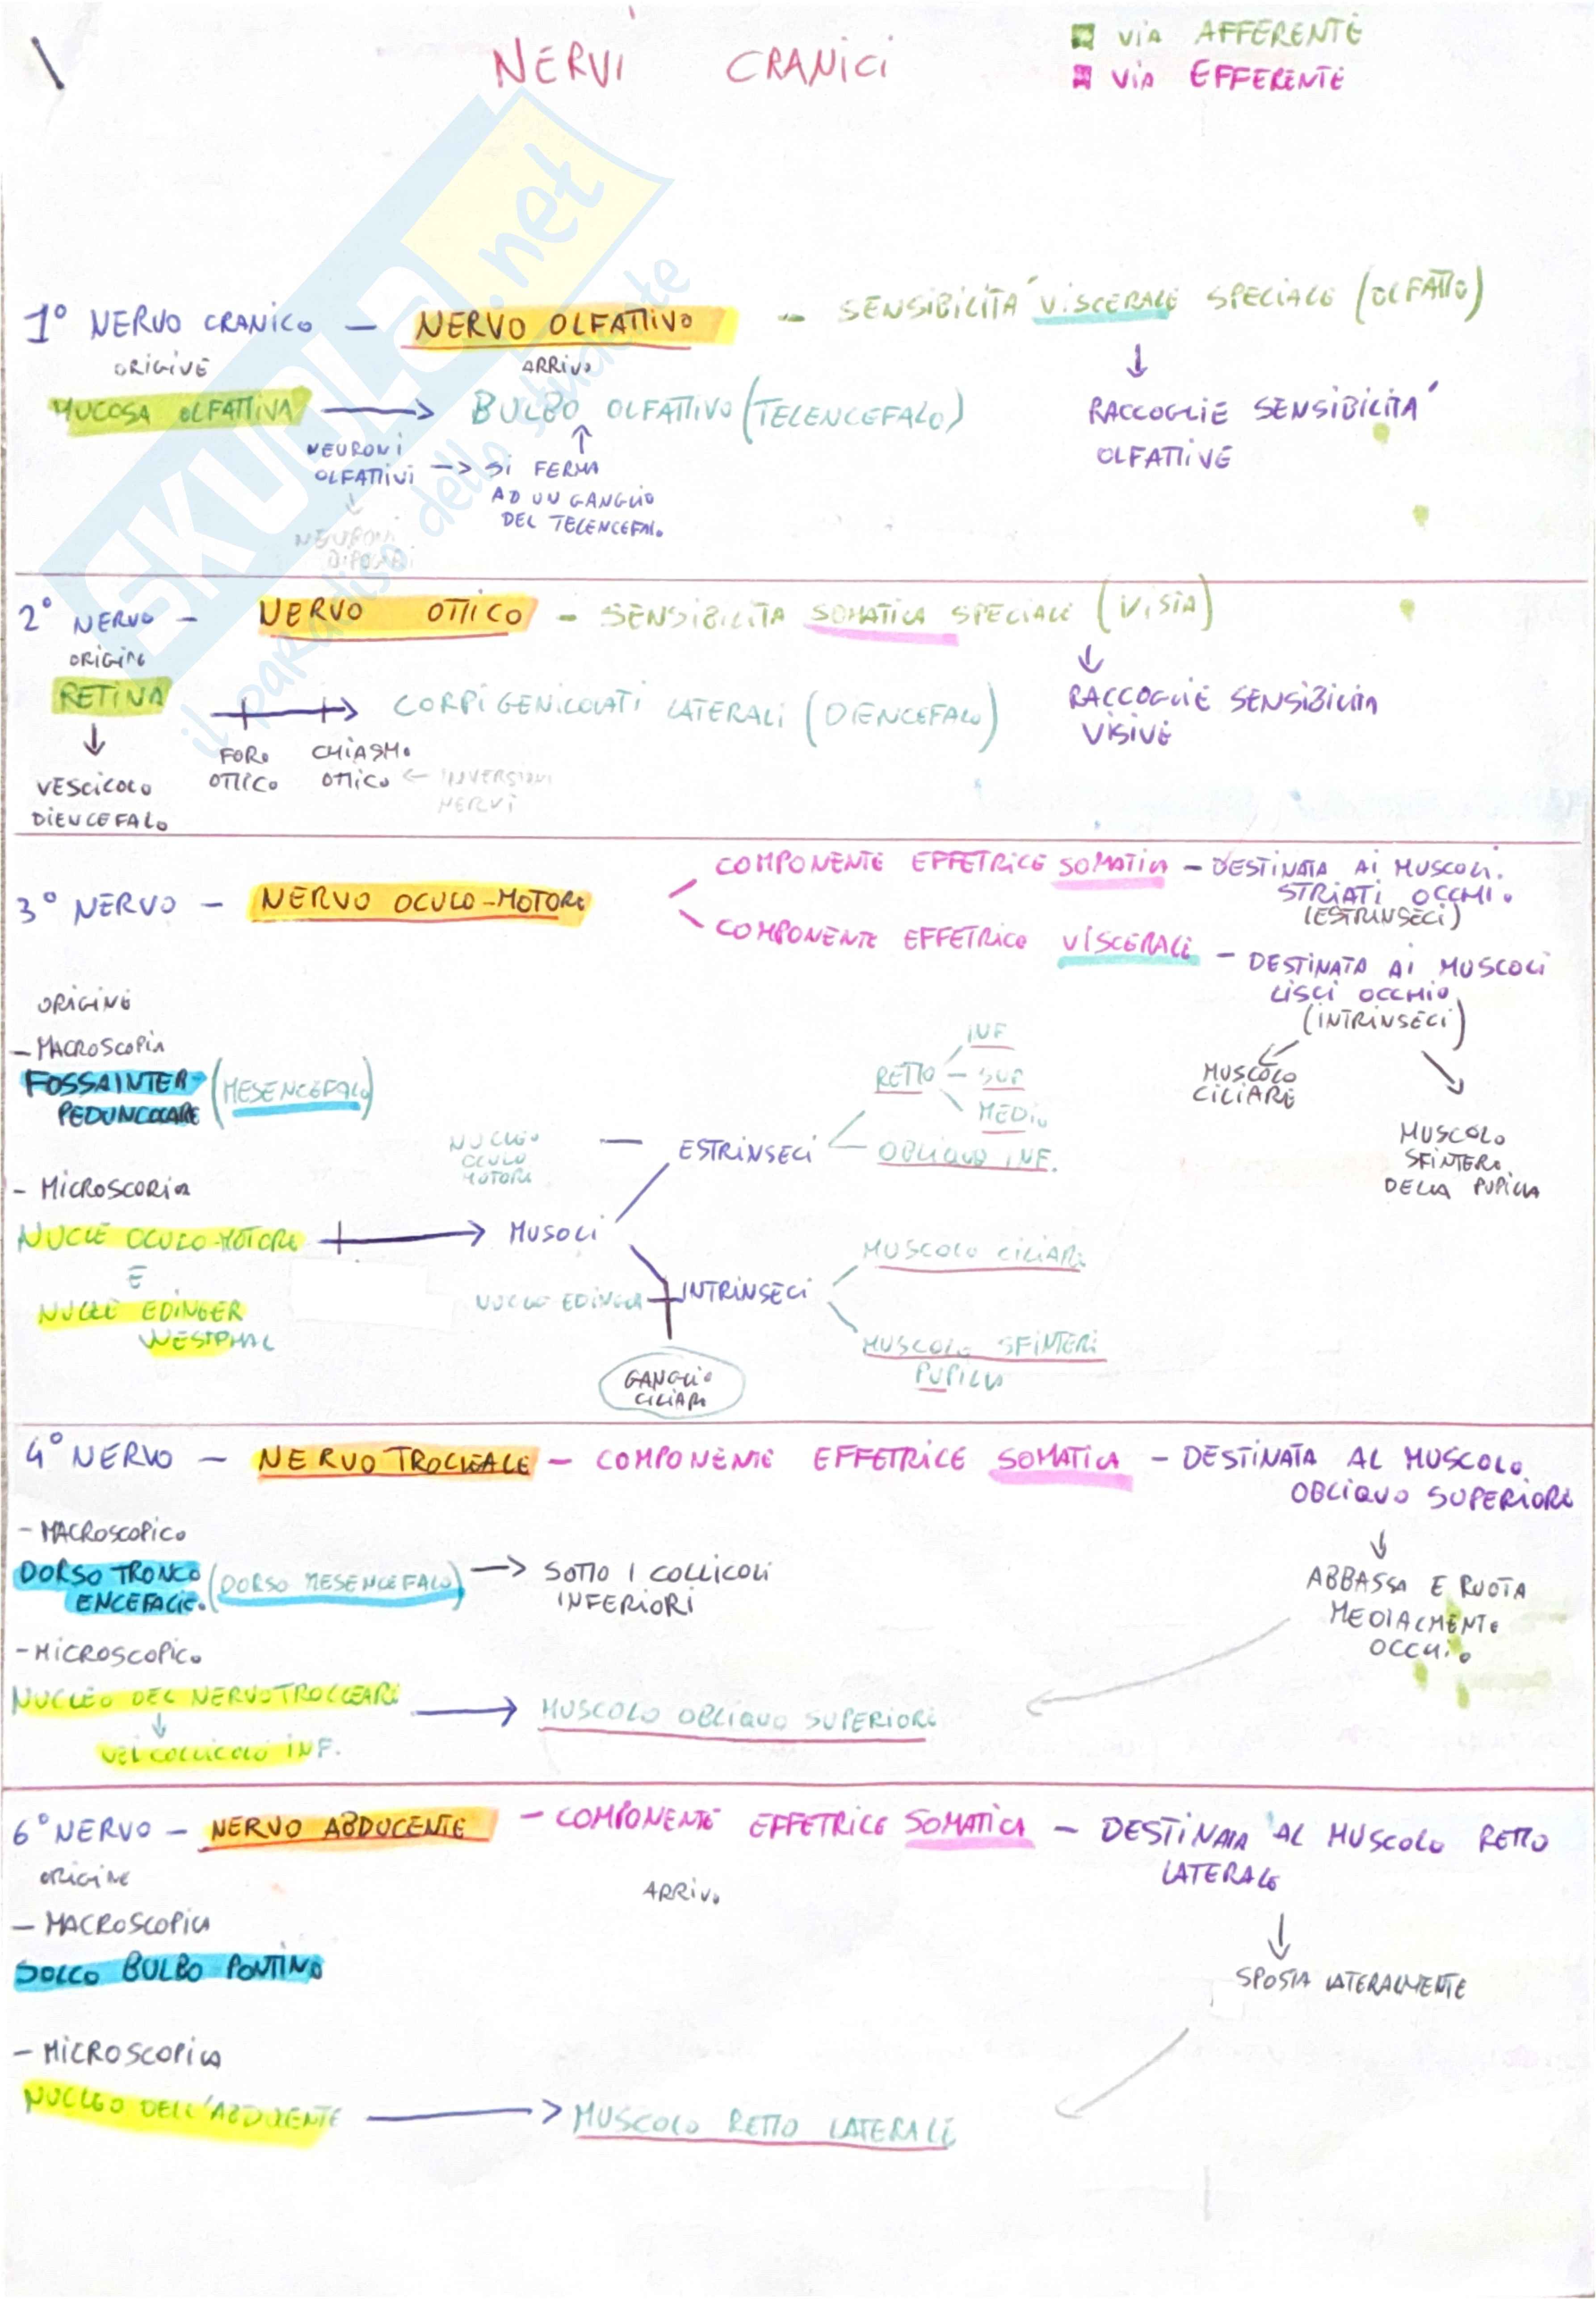 NERVI CRANICI
VIA AFFERENTE
VIA EFFERENTE
SKUOLA.net
il paradiso dello studente
1° NERVO CRANICO - NERVO OLFATTIVO - SENSIBILITA' VISCERALE SPECIALE (OLFATTO)
ORIGINE
ARRIVO
MUCOSA OLFATTIVA
BULBO OLFATTIVO (TELENCEFALO)
RACCOGLIE SENSIBILITA'
OLFATTIVE
NEURONI
OLFATTIVI -> SI FERMA
AD UN GANGLIO
DEL TELENCEFAL.
NEURONI
BIPOLARI
2° NERVO - NERVO OTTICO - SENSIBILITA SOMATICA SPECIALE (VISTA)
ORIGINE
RETINA
CORPI GENICOLATI LATERALI (DIENCEFALO)
RACCOGLIE SENSIBILITA
VISIVE
FORO
OTTICO
CHIASMO
OTTICO <- INVERSIONI
NERVI
VESCICOLO
DIENCEFALO
3° NERVO - NERVO OCULO-MOTORE
COMPONENTE EFFETRICE SOMATICA - DESTINATA AI MUSCOLI
STRIATI OCCHIO
(ESTRINSECI)
COMPONENTE EFFETRICE VISCERALE - DESTINATA AI MUSCOLI
LISCI OCCHIO
(INTRINSECI)
MUSCOLO
CILIARE
MUSCOLO
SFINTERE
DELLA PUPILLA
ORIGINE
- MACROSCOPIA
FOSSA INTER-
PEDUNCOLARE (MESENCEFALO)
- MICROSCOPIA
NUCLE OCULO-MOTORE
E
NUCLE EDINGER
WESTPHAL
MUSOLI
NUCLEO
OCULO
MOTORE
- ESTRINSECI
RETTO
INF
SUP
MEDIO
OBLIQUO INF.
NUCLEO EDINGER
INTRINSECI
MUSCOLO CILIARE
MUSCOLO SFINTERE
PUPILLA
GANGLIO
CILIARE
4° NERVO - NERVO TROCLEALE - COMPONENTE EFFETRICE SOMATICA - DESTINATA AL MUSCOLO
OBLIQUO SUPERIORE
- MACROSCOPICO
DORSO TRONCO
ENCEFALIC. (DORSO MESENCEFALO) -> SOTTO I COLLICOLI
INFERIORI
ABBASSA E RUOTA
MEDIALMENTE
OCCHIO
- MICROSCOPICO
NUCLEO DEL NERVO TROCLEARE
MUSCOLO OBLIQUO SUPERIORE
NEL COLLICOLO INF.
6° NERVO - NERVO ABDUCENTE - COMPONENTE EFFETRICE SOMATICA - DESTINATA AL MUSCOLO RETTO
LATERALE
ORIGINE
ARRIVO
- MACROSCOPICA
SOLCO BULBO PONTINO
SPOSTA LATERALMENTE
- MICROSCOPICA
NUCLEO DELL'ABDUCENTE
MUSCOLO RETTO LATERALE